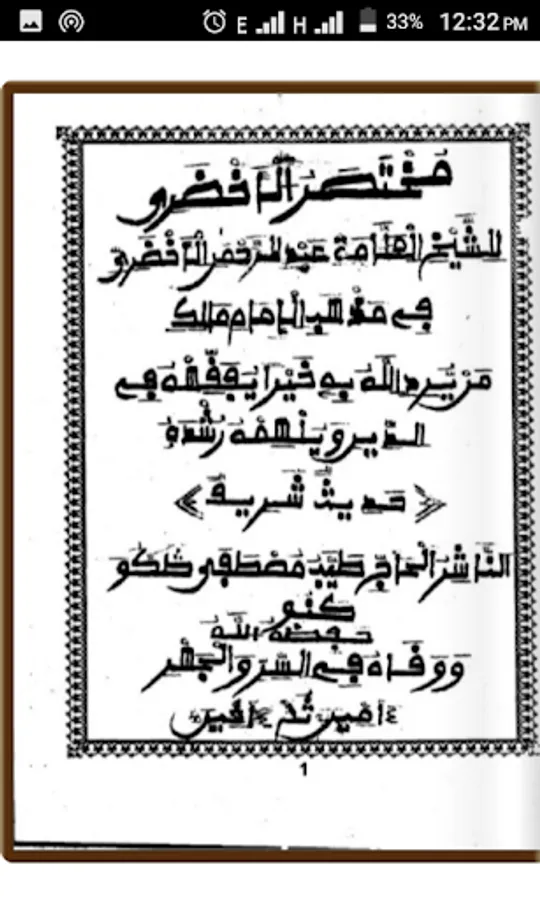 E H 33% 12:32 PM
مُخْتَصَرُ الْأَخْضَرِي
لِلشَّيْخِ الْعَلَّامَةِ عَبْدِ الرَّحْمٰنِ الْأَخْضَرِي
فِي مَذْهَبِ الْإِمَامِ مَالِك
مَنْ يُّرِدِ اللَّهُ بِهِ خَيْرًا يُفَقِّهْهُ فِي
الدِّينِ وَيُلْهِمْهُ رُشْدَهُ
﴿ حديث شريف ﴾
النَّاشِرُ الْحَاجّ طَيِّب مُصْطَفَى
كَنُو
حفظه الله
وَوَقَاهُ فِي السِّرِّ وَالْجَهْرِ
ءامين ثُمَّ ءامين
1